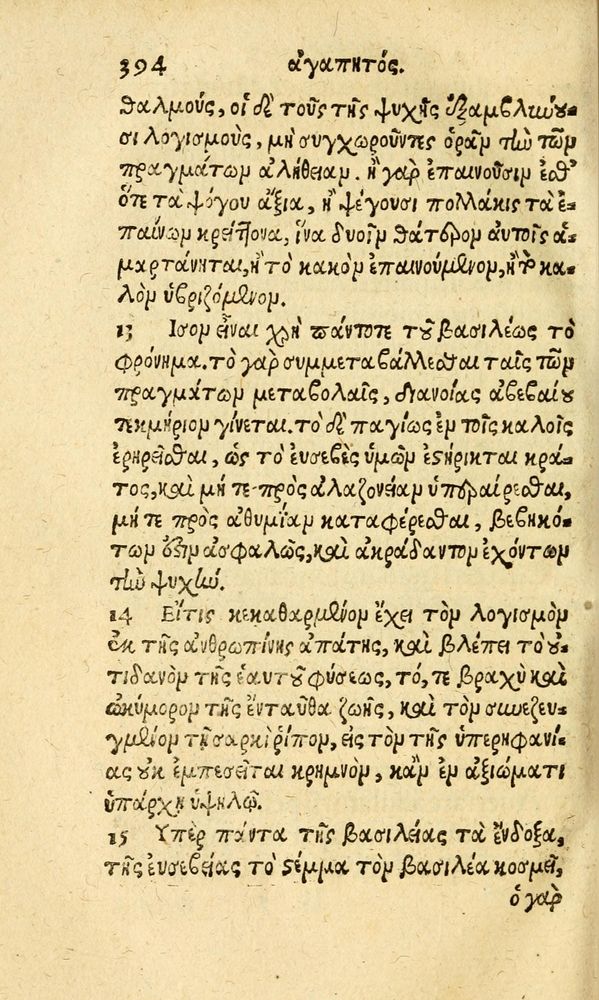 394 ἀγαπητός.
θαλμούς, οἱ δὲ τοὺς τῆς ψυχῆς ἐξαμβλύου-
σι λογισμοὺς, μὴ συγχωροῦντες ὁρᾶν τὴν τῶν
πραγμάτων ἀλήθειαν. ἢ γὰρ ἐπαινοῦσιν ἔσθ᾽
ὅτε τὰ ψόγου ἄξια, ἢ ψέγουσι πολλάκις τὰ ἐ-
παίνων κρείττονα, ἵνα δυοῖν θάτερον αὐτοῖς ἁ-
μαρτάνηται, ἢ τὸ κακὸν ἐπαινούμενον, ἢ τὸ κα-
λὸν ὑβριζόμενον.
13 Ισον εἶναι χρὴ πάντοτε τοῦ βασιλέως τὸ
φρόνημα. τὸ γὰρ συμμεταβάλλεσθαι ταῖς τῶν
πραγμάτων μεταβολαῖς, διανοίας ἀβεβαίου
τεκμήριον γίνεται. τὸ δὲ παγίως ἐν τοῖς καλοῖς
ἐρηρεῖσθαι, ὡς τὸ εὐσεβὲς ὑμῶν ἐστήρικται κρά-
τος, καὶ μή τε πρὸς ἀλαζονείαν ὑπεραίρεσθαι,
μή τε πρὸς ἀθυμίαν καταφέρεσθαι, βεβηκό-
των ἐστὶν ἀσφαλῶς, καὶ ἀκράδαντον ἐχόντων
τὴν ψυχήν.
14 Εἴτις κεκαθαρμένον ἔχει τὸν λογισμὸν
ἐκ τῆς ἀνθρωπίνης ἀπάτης, καὶ βλέπει τὸ οὐ-
τιδανὸν τῆς ἑαυτοῦ φύσεως, τό, τε βραχὺ καὶ
ὠκύμορον τῆς ἐνταῦθα ζωῆς, καὶ τὸν συνεζευ-
γμένον τῇ σαρκὶ ῥύπον, εἰς τὸν τῆς ὑπερηφανί-
ας οὐκ ἐμπεσεῖται κρημνὸν, κἂν ἐν ἀξιώματι
ὑπάρχῃ ὑψηλῷ.
15 Υπὲρ πάντα τῆς βασιλείας τὰ ἔνδοξα,
τῆς εὐσεβείας τὸ στέμμα τὸν βασιλέα κοσμεῖ,
ὁ γὰρ